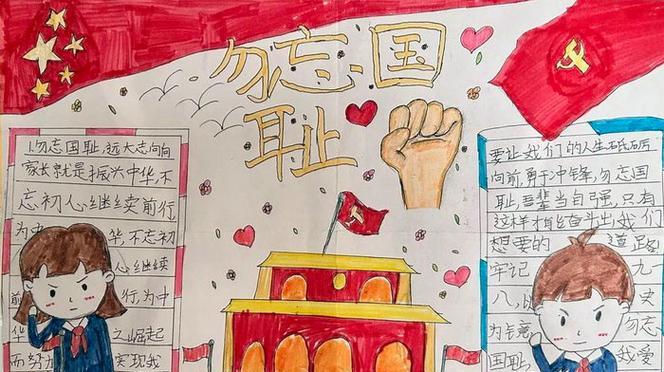 勿忘·国
耻
勿忘国耻,远大志向向
家长就是振兴中华,不
忘初心继续前行
为中 华,不忘初
心继续
前 行,为中
华 之崛起
而努力 实现我
要让我们的人生砥砺
向前,勇于冲锋,勿忘国
耻,吾辈当自强,只有
这样才能奋斗出我们
想要的 道路
牢记 九
一八,以 史
为 勿忘
国耻 我爱